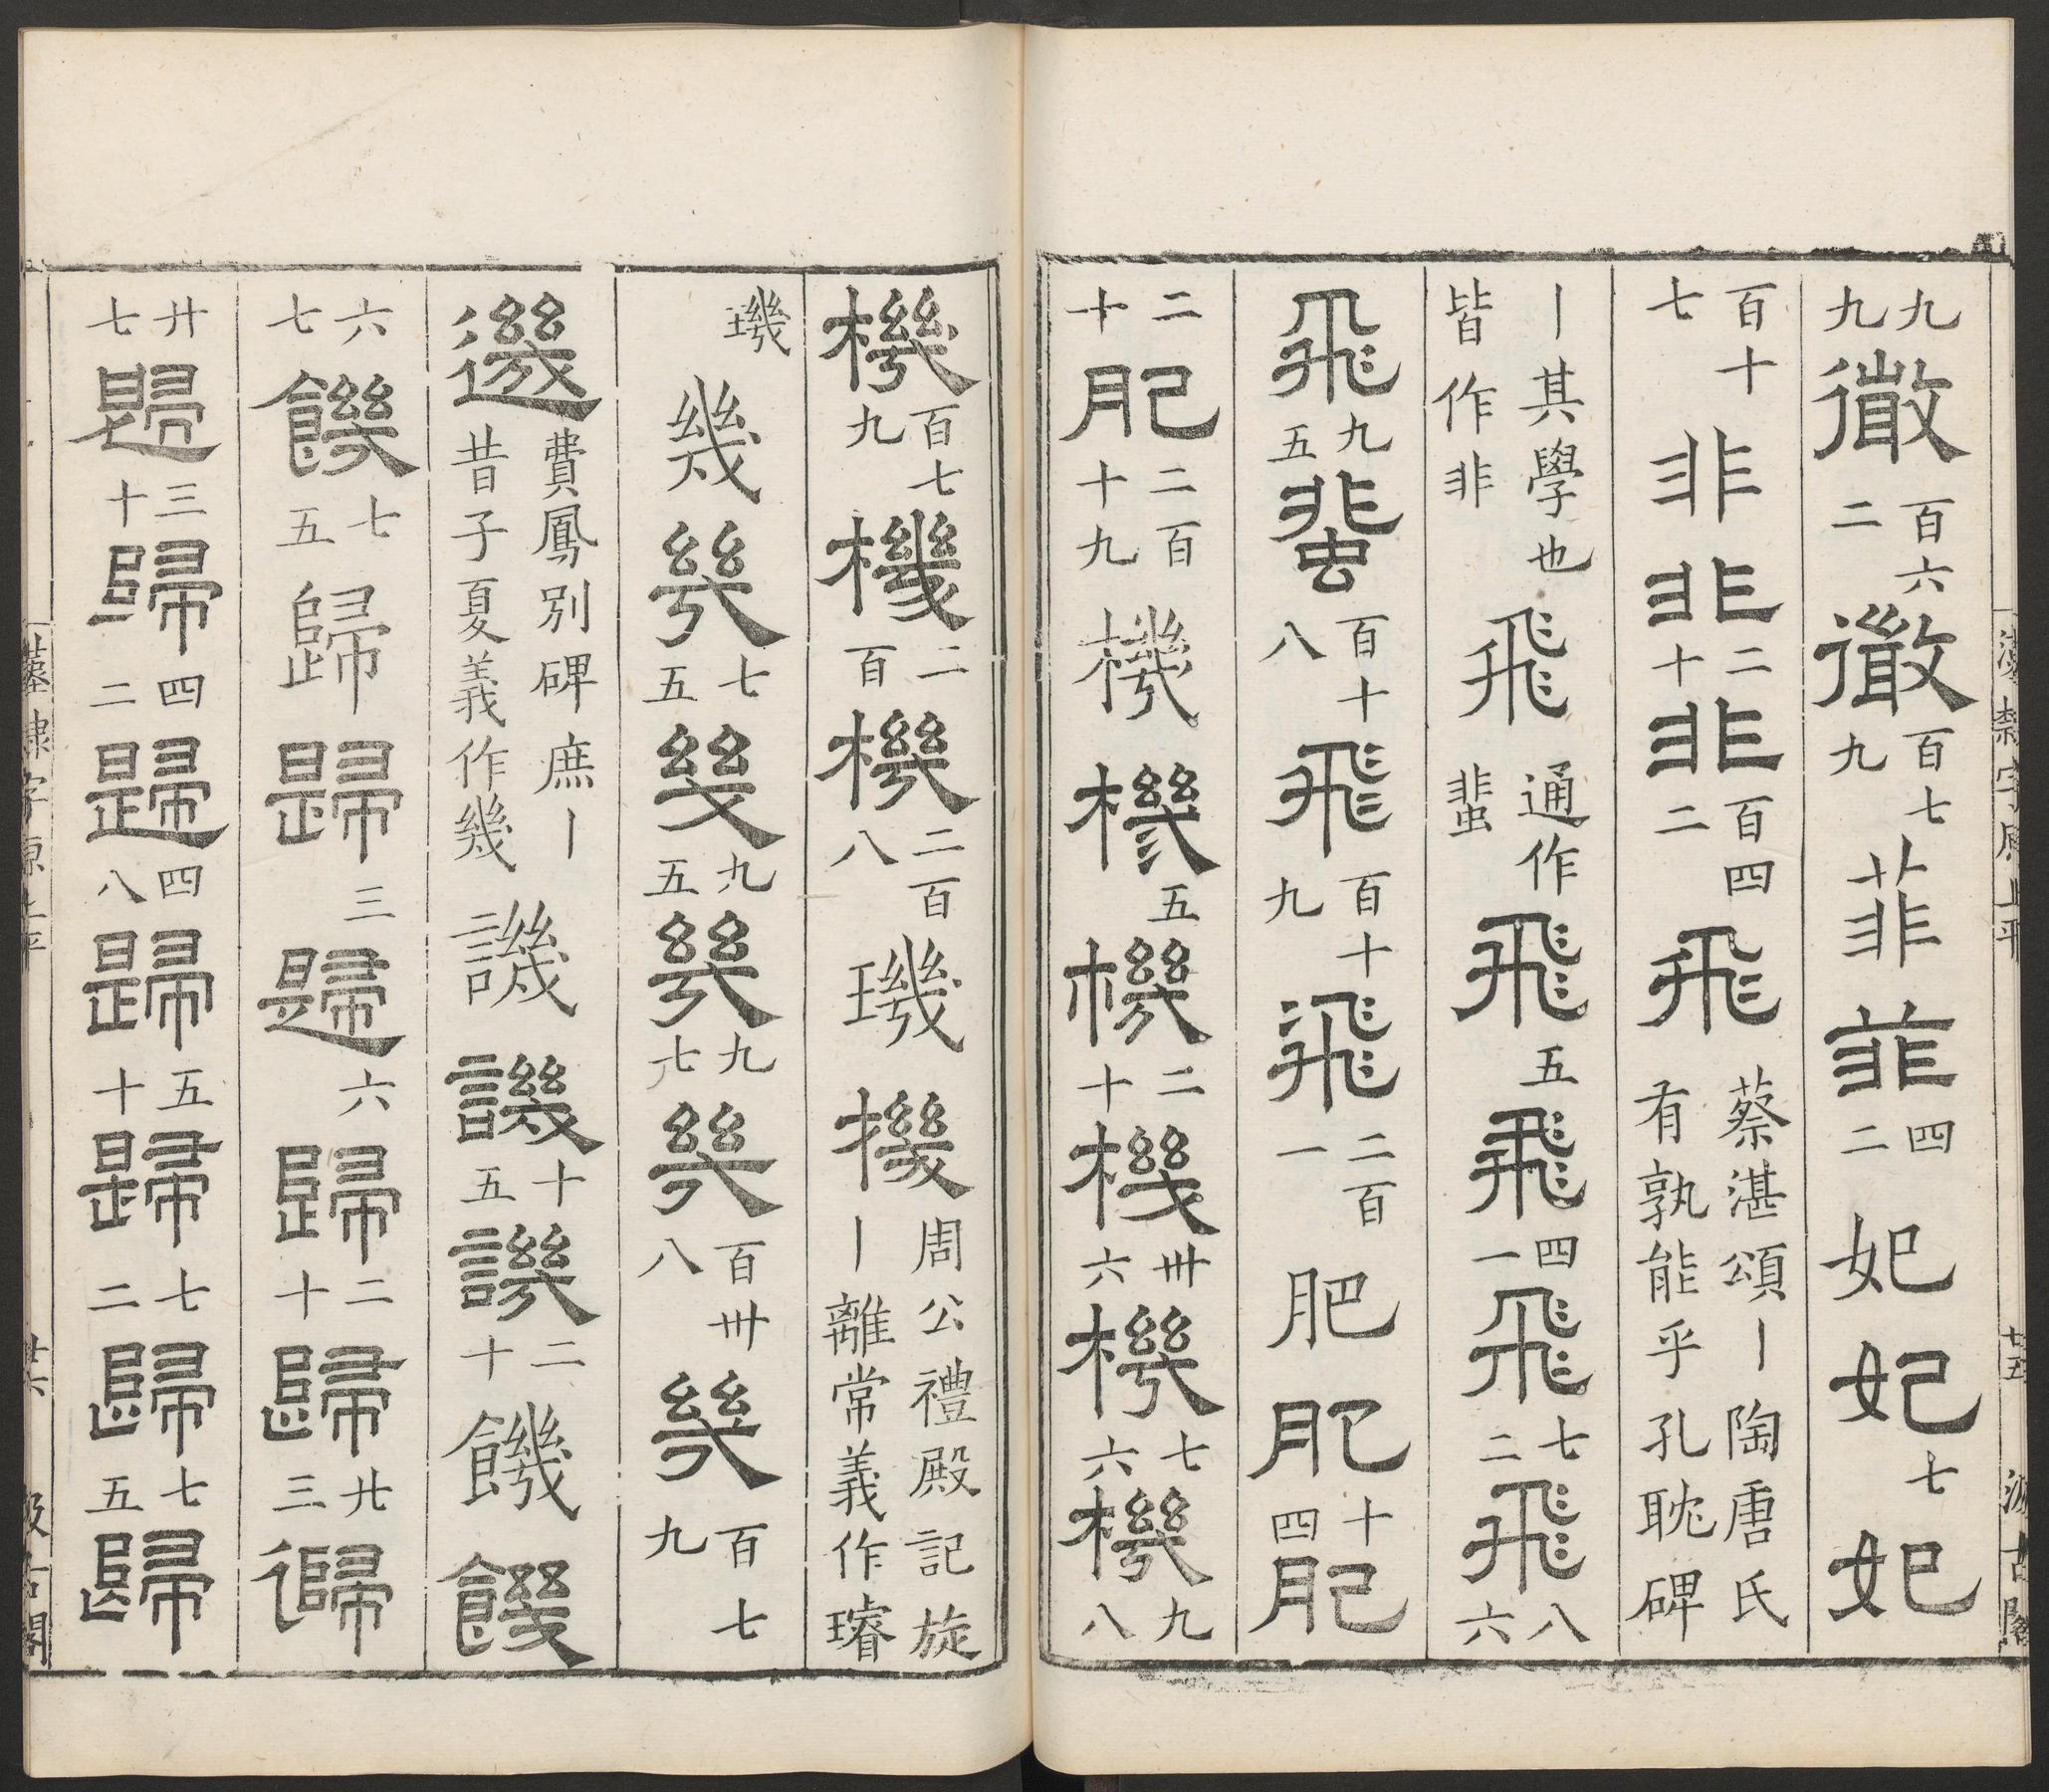 九九徽百六二徽百七九菲菲四二妃妃七妃
百十七非非二十非百四二飛蔡湛頌丨陶唐氏有孰能乎孔耽碑
丨其學也皆作非飛通作蜚飛五飛四一飛七二飛八六
飛九五蜚百十八飛百十九飛二百一肥肥十四肥
二十肥二百十九機機五機二十機卅六機七六機九八
機百七九機二百機二百八璣機周公禮殿記旋丨離常義作璿
璣幾幾七五幾九五幾九七幾百卅八幾百七九
䢋費鳳別碑庶丨昔子夏義作幾譏譏十五譏二十饑饑
六七饑七五歸歸三歸六歸二十歸廿三歸
廿七歸三十歸四二歸四八歸五十歸七二歸七五歸
漢隸字原上平 七五 汲古閣
漢隸字原上平 廿六 汲古閣